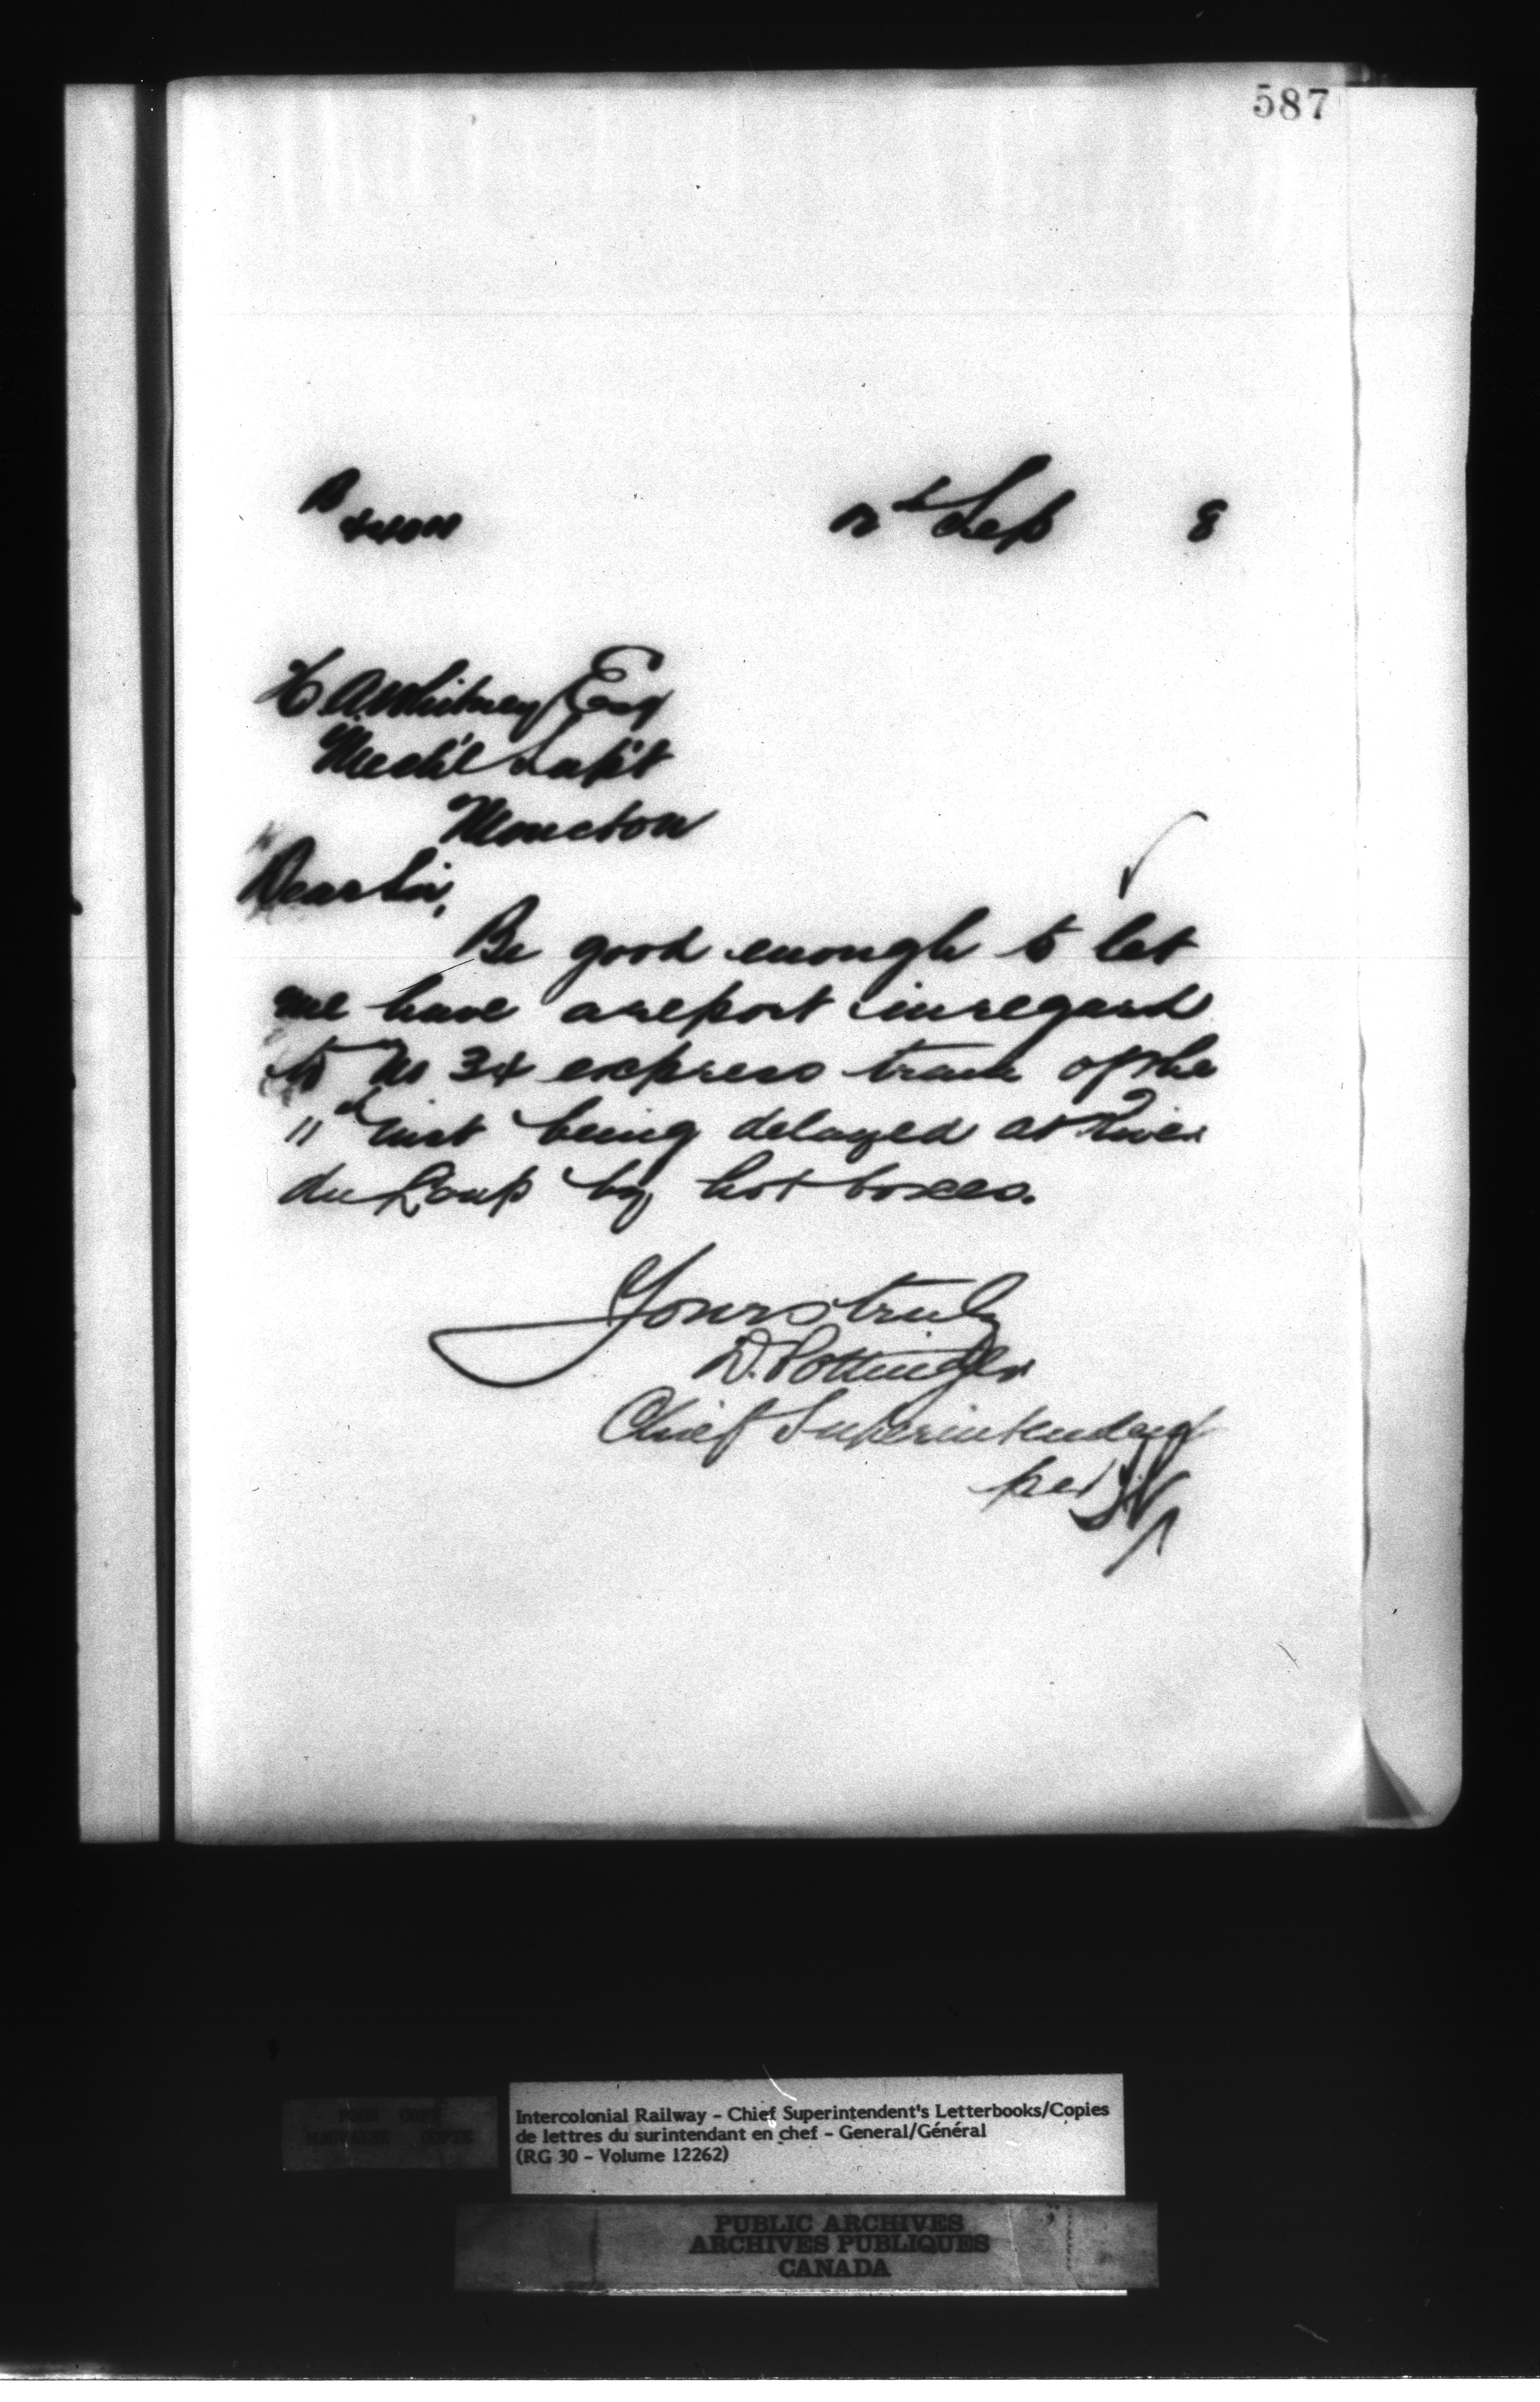 587
B
12th Sep 8
H A Whitney Esq
Mech'l Sup't
Moncton
Dear Sir,
Be good enough to let
me have a report in regard
to No 34 express train of the
11th inst being delayed at River
du Loup by hot boxes.
Yours truly
D. Pottinger
Chief Superintendent
per
POOR COPY
MAUVAISE COPIE
Intercolonial Railway - Chief Superintendent's Letterbooks/Copies
de lettres du surintendant en chef - General/Général
(RG 30 - Volume 12262)
PUBLIC ARCHIVES
ARCHIVES PUBLIQUES
CANADA